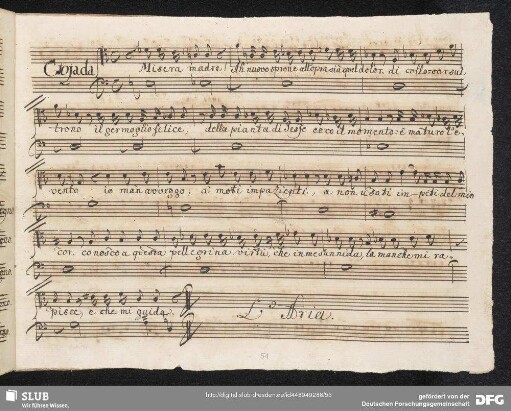 Gojada
Misera madre! Ah nuovo sprone all'opra sia quel dolor. di collocar sul
trono il germoglio felice, della pianta di Jesse ecco il momento: è maturo l'e-
vento io man avvengo, a moti impazienti, a non usati impeti del mio
cor. conosco a questa pellegrina virtù, che in me s'annida, la man che mi ra-
pisce, e che mi guida.
L'Aria.
51
SLUB
Wir führen Wissen.
gefördert von der
Deutschen Forschungsgemeinschaft
DFG